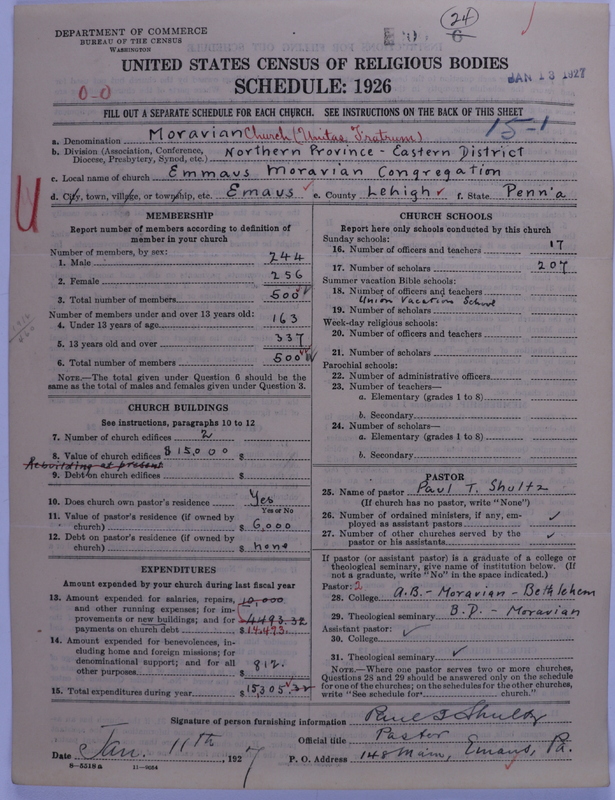 24
6
DEPARTMENT OF COMMERCE
BUREAU OF THE CENSUS
WASHINGTON
UNITED STATES CENSUS OF RELIGIOUS BODIES
SCHEDULE: 1926
JAN 13 1927
0-0
FILL OUT A SEPARATE SCHEDULE FOR EACH CHURCH. SEE INSTRUCTIONS ON THE BACK OF THIS SHEET
15-1
a. Denomination Moravian Church (Unitas Fratrum)
b. Division (Association, Conference, Diocese, Presbytery, Synod, etc.) Northern Province - Eastern District
c. Local name of church Emmaus Moravian Congregation
d. City, town, village, or township, etc. Emaus e. County Lehigh f. State Penn'a
MEMBERSHIP
Report number of members according to definition of
member in your church
Number of members, by sex:
1. Male 244
2. Female 256
3. Total number of members 500
Number of members under and over 13 years old:
4. Under 13 years of age 163
5. 13 years old and over 337
6. Total number of members 500
NOTE.—The total given under Question 6 should be the
same as the total of males and females given under Question 3.
CHURCH BUILDINGS
See instructions, paragraphs 10 to 12
7. Number of church edifices 2
8. Value of church edifices $15000 $
Rebuilding at present
9. Debt on church edifices $
10. Does church own pastor's residence Yes
Yes or No
11. Value of pastor's residence (if owned by
church) $ 6,000
12. Debt on pastor's residence (if owned by
church) $ none
EXPENDITURES
Amount expended by your church during last fiscal year
13. Amount expended for salaries, repairs, 10,000
and other running expenses; for im-
provements or new buildings; and for 4493.32
payments on church debt $14,493.
14. Amount expended for benevolences, in-
cluding home and foreign missions; for
denominational support; and for all
other purposes $ 812.
15. Total expenditures during year $ 15,305.32
CHURCH SCHOOLS
Report here only schools conducted by this church
Sunday schools:
16. Number of officers and teachers 17
17. Number of scholars 207
Summer vacation Bible schools:
18. Number of officers and teachers
Union Vacation School
19. Number of scholars
Week-day religious schools:
20. Number of officers and teachers
21. Number of scholars
Parochial schools:
22. Number of administrative officers
23. Number of teachers—
a. Elementary (grades 1 to 8)
b. Secondary
24. Number of scholars—
a. Elementary (grades 1 to 8)
b. Secondary
PASTOR
25. Name of pastor Paul T. Shultz
(If church has no pastor, write "None")
26. Number of ordained ministers, if any, em-
ployed as assistant pastors
27. Number of other churches served by the
pastor or his assistants
If pastor (or assistant pastor) is a graduate of a college or
theological seminary, give name of institution below. (If
not a graduate, write "No" in the space indicated.)
Pastor: 2
28. College A.B. - Moravian - Bethlehem
29. Theological seminary B.D. - Moravian
Assistant pastor:
30. College
31. Theological seminary
NOTE.—Where one pastor serves two or more churches,
Questions 28 and 29 should be answered only on the schedule
for one of the churches; on the schedules for the other churches,
write "See schedule for church."
Signature of person furnishing information Paul T Shultz
Official title Pastor
Date Jan. 11th, 1927
P. O. Address 148 Main, Emaus, Pa.
8-5518 a 11-9064